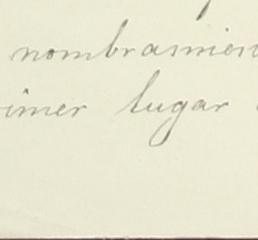 nombramien
imer lugar